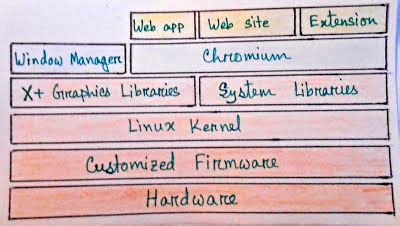 Web app Web site Extension
Window Manager Chromium
X+ Graphics Libraries System Libraries
Linux Kernel
Customized Firmware
Hardware